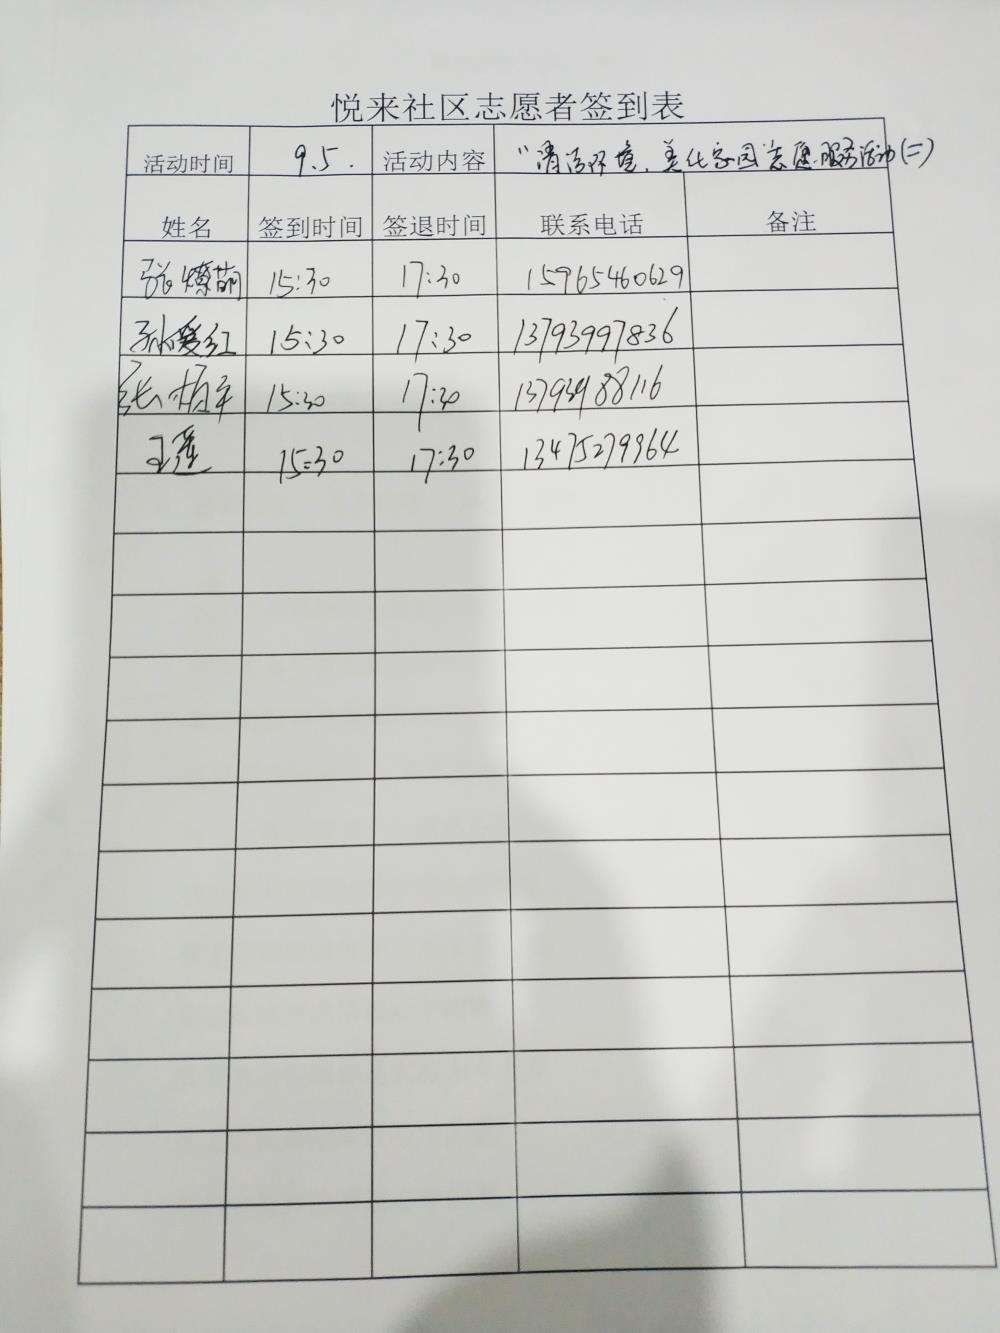 悦来社区志愿者签到表
活动时间 9.5. 活动内容 "清洁环境、美化家园"志愿服务活动(二)
姓名 签到时间 签退时间 联系电话 备注
张燎萌 15:30 17:30 15965460629
孙爱红 15:30 17:30 13793997836
张 15:30 17:30 13793988116
王莲 15:30 17:30 13475279964